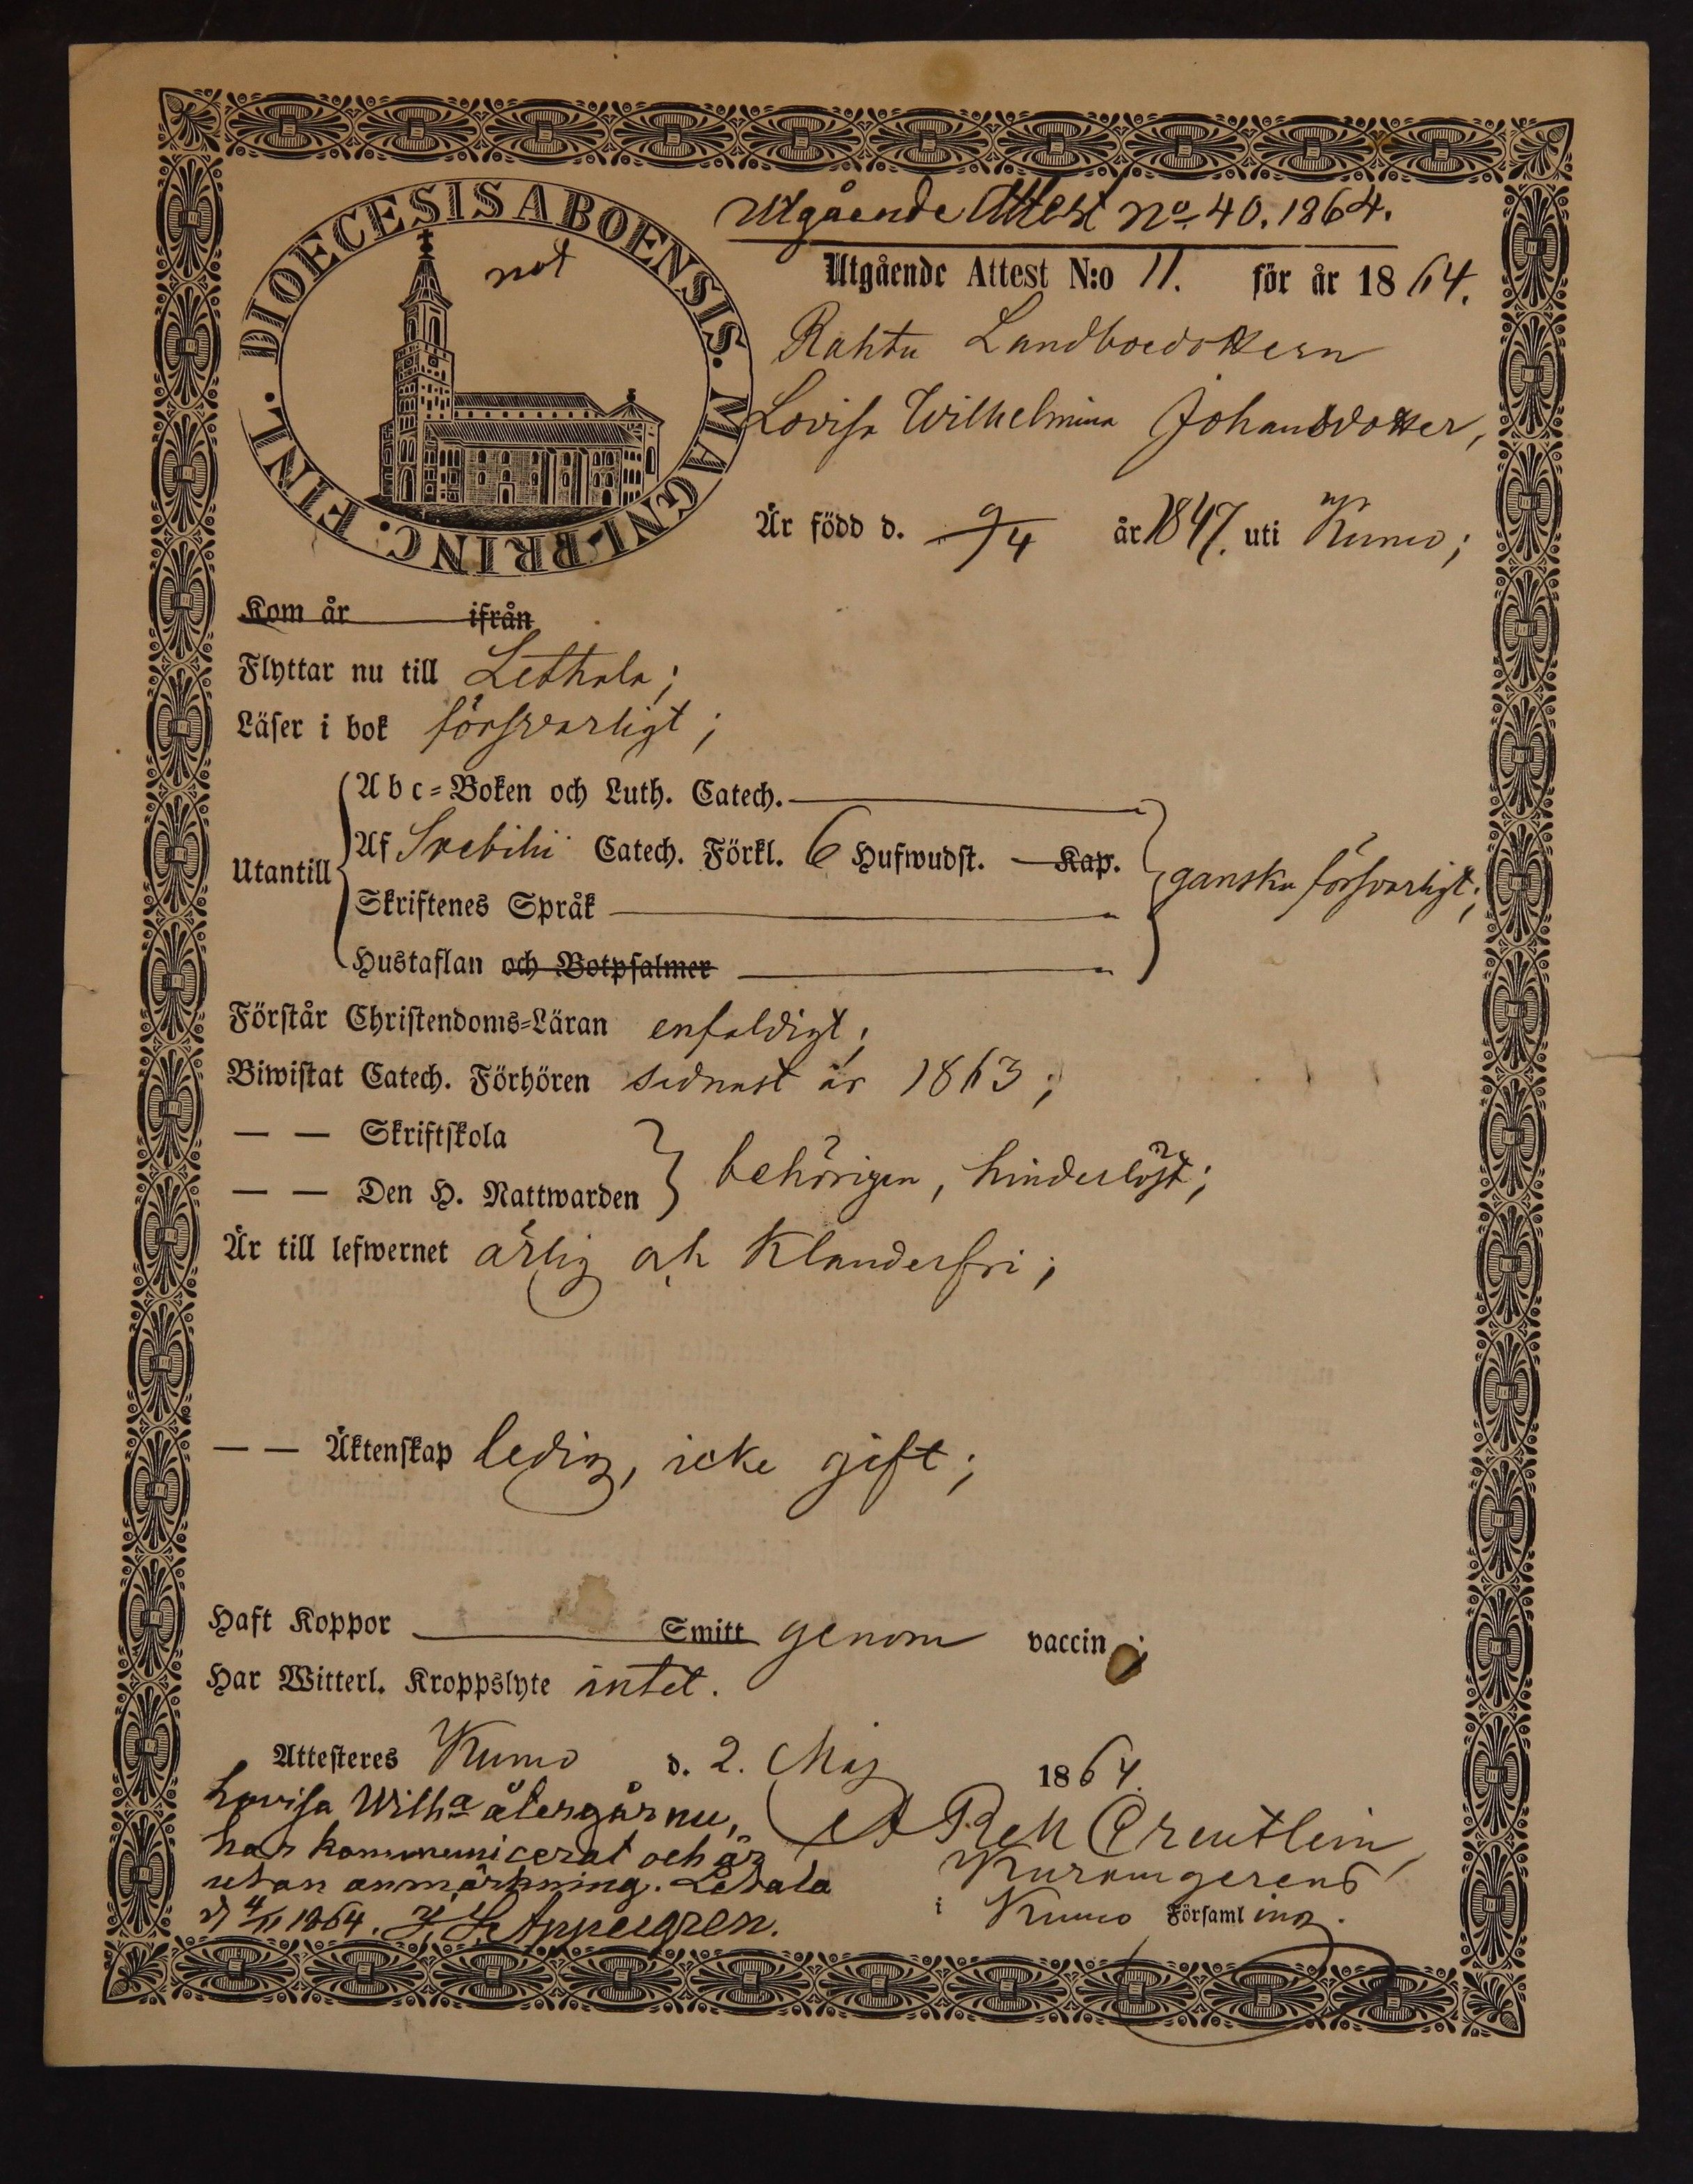 DIOECESIS ABOENSIS. MAGNI PRINC. FINL.
not
Utgående Attest No 40. 1864.
Utgående Attest N:o 11. för år 1864.
Rahtu Landboedottern
Lovisa Wilhelmina Johansdotter,
Är född d. 9/4 år 1847. uti Kumo;
Kom år ifrån
Flyttar nu till Lethala;
Läser i bok försvarligt;
Utantill
Abc-Boken och Luth. Catech.
Af Svebilii Catech. Förkl. 6 Hufwudst. Kap.
ganska försvarligt;
Skriftenes Språk
Hustaflan och Botpsalmer
Förstår Christendoms-Läran enfaldigt;
Biwistat Catech. Förhören sednast år 1863;
— — Skriftskola
— — Den H. Nattwarden
behörigen, hinderlöst;
Är till lefwernet ärlig och klanderfri;
— — Äktenskap ledig, icke gift;
Haft Koppor Smitt genom vaccin;
Har Witterl. Kroppslyte intet.
Attesteres Kumo d. 2. Maj 1864.
Lovisa Wilha återgår nu,
har kommunicerat och är
utan anmärkning. Letala
d 4/11 1864. Appelgren.
Creutlein
i Kumo Församling.